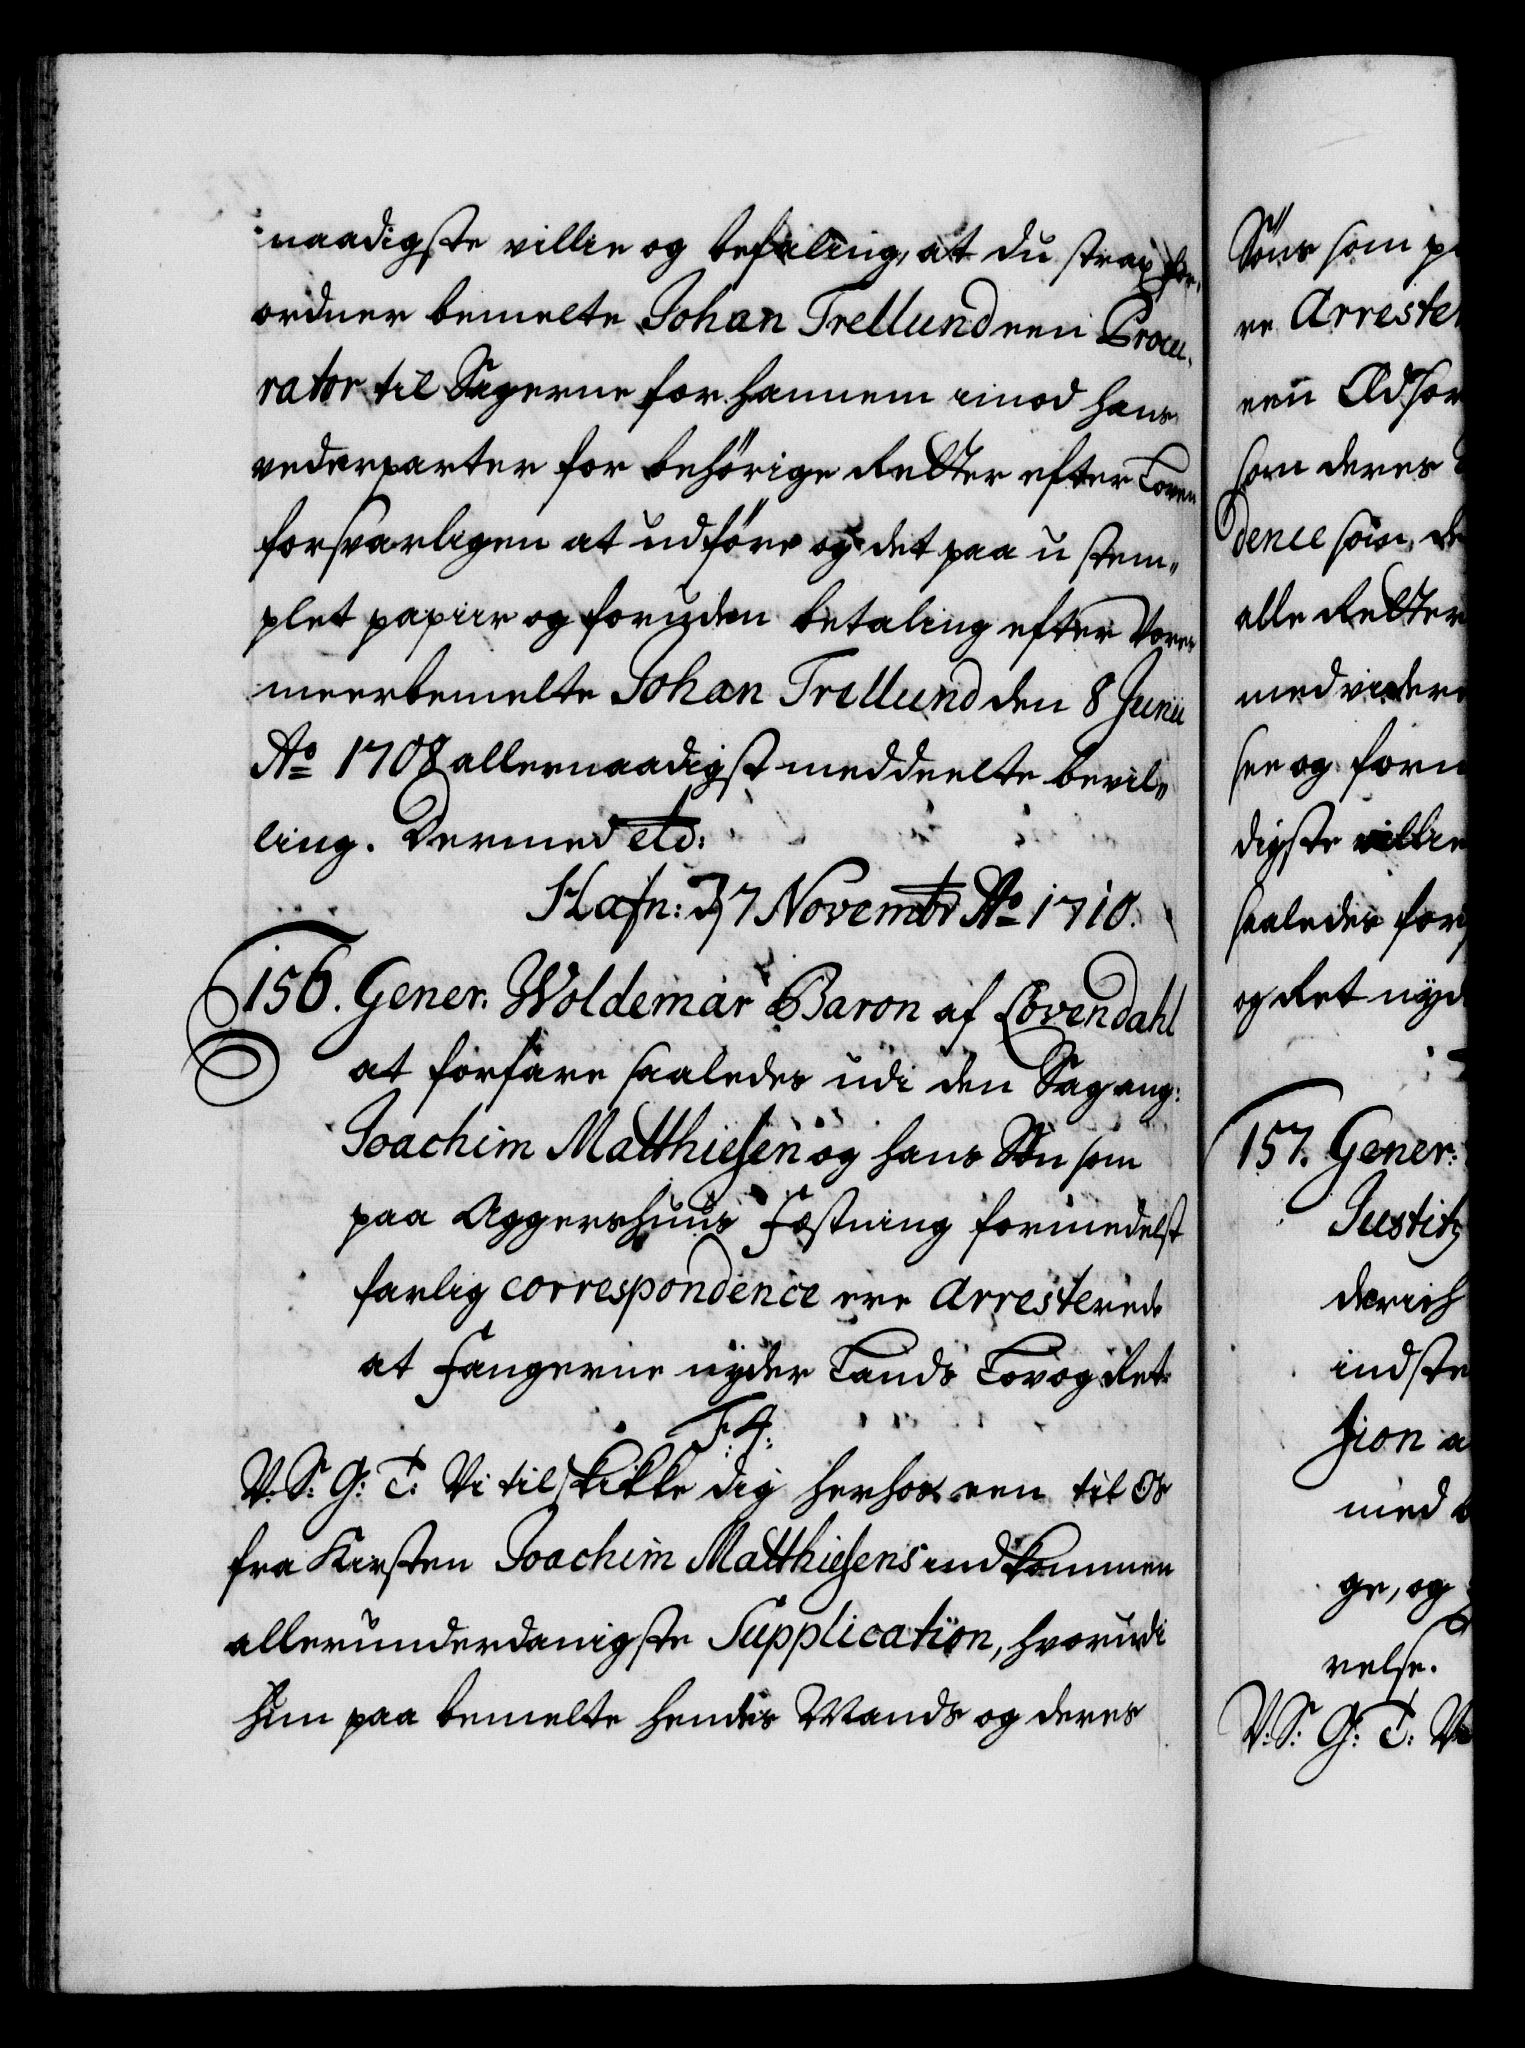 naadigste villie og befaling, at du strax for-
ordner bemelte Johan Trellund een Procu-
rator til Sagerne for hannem imod hans
vederparter for behörige Retter efter Loven
forsvarligen at udföre og det paa u stem-
plet papiir og foruden betaling efter Vores
meerbemelte Johan Trellund den 8 Junii
Ao 1708 allernaadigst meddeelte bevil-
ling. Dermed etc:
Hafn: D 7 Novembr Ao 1710.
156. Gener: Woldemar Baron af Lövendahl
at forfare saaledes udi den Sag ang:
Joachim Matthiesen og hans Sön som
paa Aggershuus Fæstning formedelst
farlig correspondence ere Arresterede
at Fangerne nyder Lands Lov og Ret.
F: 4:
V. S: G: T: Vi tilskikke dig herhos een til Os
fra Kirsten Joachim Matthiesens indkommen
allerunderdanigste Supplication, hvorudi
hun paa bemelte hendes Mands og deres
Söns som pa
re Arrester
een
som deres
dence som de
alle Retter
med videre
see og forn
digste villie
saaledes for
og Ret nyd
157. Gener:
Justitz
derich
indste
sion a
med
ge, og
velse.
V: S: G: T: Vi